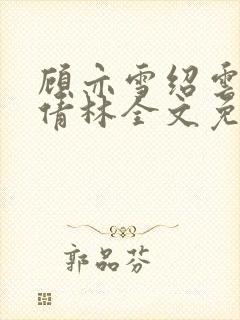 顾亦雪绍雲
倩林全文免
郭品芬